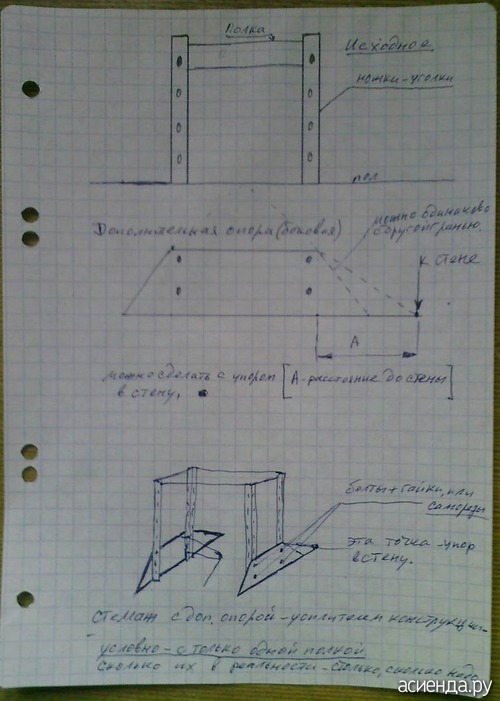 Полка
Исходное
ножки-уголки
пол
Дополнительная опора (боковая)
можно одинаково
с другой гранью.
к стене
А
можно сделать с упором
в стену.
[А-расстояние до стены]
болты+гайки, или
саморезы
эта точка-упор
в стену.
стеллаж с доп. опорой-усилителем конструкции-
условно-с только одной полкой
сколько их в реальности-столько, сколько надо
асиенда.ру